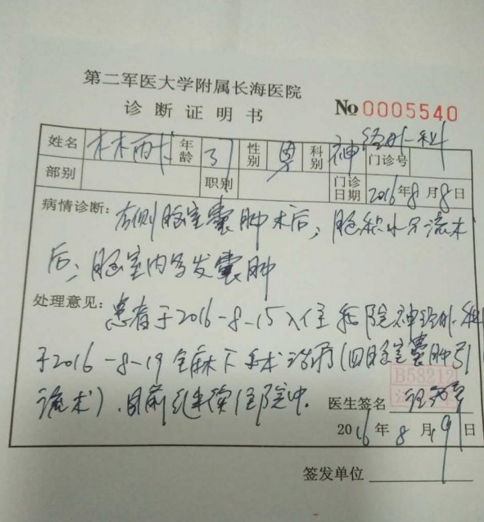 第二军医大学附属长海医院
诊断证明书
No 0005540
姓名 年龄 37 性别 男 科别 神经外科 门诊号
部别 职别 门诊日期 2016年8月8日
病情诊断：右侧脑室囊肿术后；脑积水分流术
后；脑室内多发囊肿
处理意见：患者于2016-8-15入住我院神经外科
于2016-8-19全麻下手术治疗（四脑室囊肿引
流术）．目前继续住院中．
B53212
医生签名
2016年8月9日
签发单位